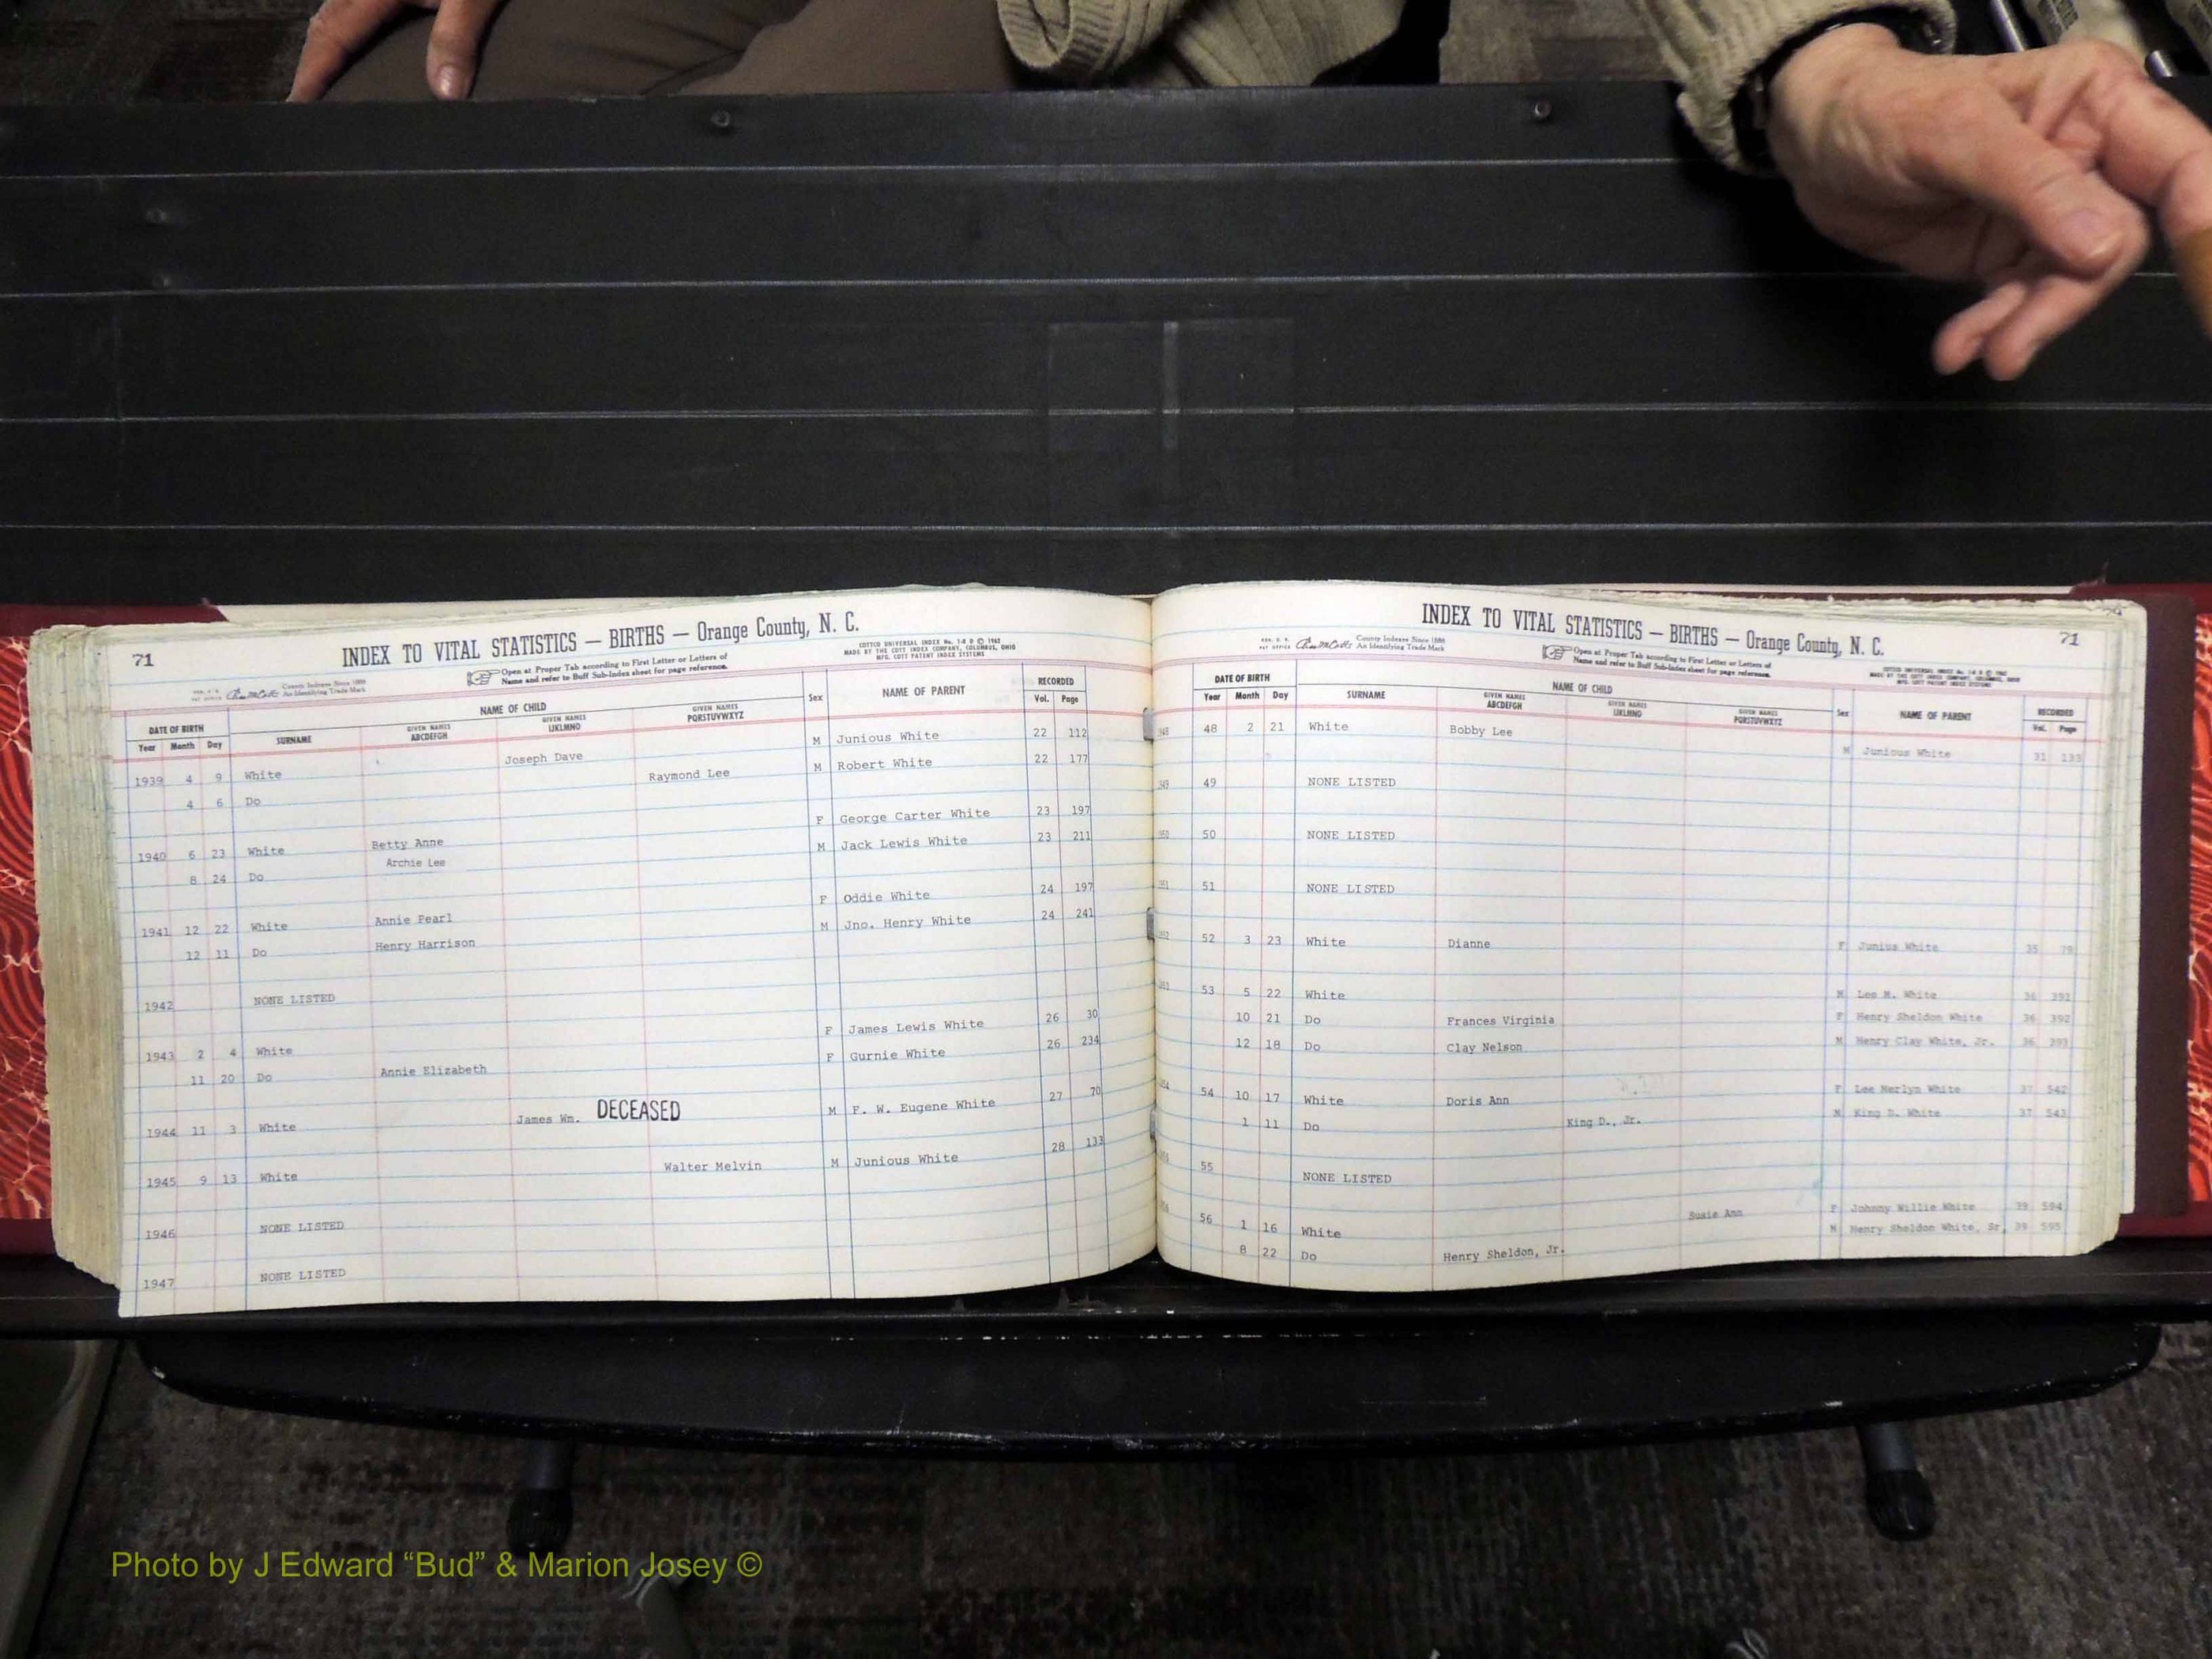 71
INDEX TO VITAL STATISTICS — BIRTHS — Orange County, N. C.
COTTCO UNIVERSAL INDEX No. 1-8 D © 1962
MADE BY THE COTT INDEX COMPANY, COLUMBUS, OHIO
MFG. COTT PATENT INDEX SYSTEMS
County Indexes Since 1888
An Identifying Trade Mark
Open at Proper Tab according to First Letter or Letters of
Name and refer to Buff Sub-Index sheet for page reference.
DATE OF BIRTH NAME OF CHILD Sex NAME OF PARENT RECORDED
Year Month Day SURNAME GIVEN NAMES ABCDEFGH GIVEN NAMES IJKLMNO GIVEN NAMES PQRSTUVWXYZ Vol. Page
1939 4 9 White Joseph Dave M Junious White 22 112
4 6 Do Raymond Lee M Robert White 22 177
1940 6 23 White Betty Anne F George Carter White 23 197
8 24 Do Archie Lee M Jack Lewis White 23 211
1941 12 22 White Annie Pearl F Oddie White 24 197
12 11 Do Henry Harrison M Jno. Henry White 24 241
1942 NONE LISTED
1943 2 4 White F James Lewis White 26 30
11 20 Do Annie Elizabeth F Gurnie White 26 234
1944 11 3 White James Wm. DECEASED M F. W. Eugene White 27 70
1945 9 13 White Walter Melvin M Junious White 28 133
1946 NONE LISTED
1947 NONE LISTED
INDEX TO VITAL STATISTICS — BIRTHS — Orange County, N. C.
71
County Indexes Since 1888
An Identifying Trade Mark
Open at Proper Tab according to First Letter or Letters of
Name and refer to Buff Sub-Index sheet for page reference.
DATE OF BIRTH NAME OF CHILD Sex NAME OF PARENT RECORDED
Year Month Day SURNAME GIVEN NAMES ABCDEFGH GIVEN NAMES IJKLMNO GIVEN NAMES PQRSTUVWXYZ Vol. Page
48 2 21 White Bobby Lee M Junious White 31
49 NONE LISTED
50 NONE LISTED
51 NONE LISTED
52 3 23 White Dianne F Junius White 35
53 5 22 White M Lee M. White 36 391
10 21 Do Frances Virginia F Henry Sheldon White 36 392
12 18 Do Clay Nelson M Henry Clay White, Jr. 36 393
54 10 17 White Doris Ann F Lee Merlyn White 37 542
1 11 Do King D., Jr. M King D. White 37 543
55 NONE LISTED
56 1 16 White Susie Ann F Johnny Willie White 39 594
8 22 Do Henry Sheldon, Jr. M Henry Sheldon White, Sr. 39 595
Photo by J Edward “Bud” & Marion Josey ©